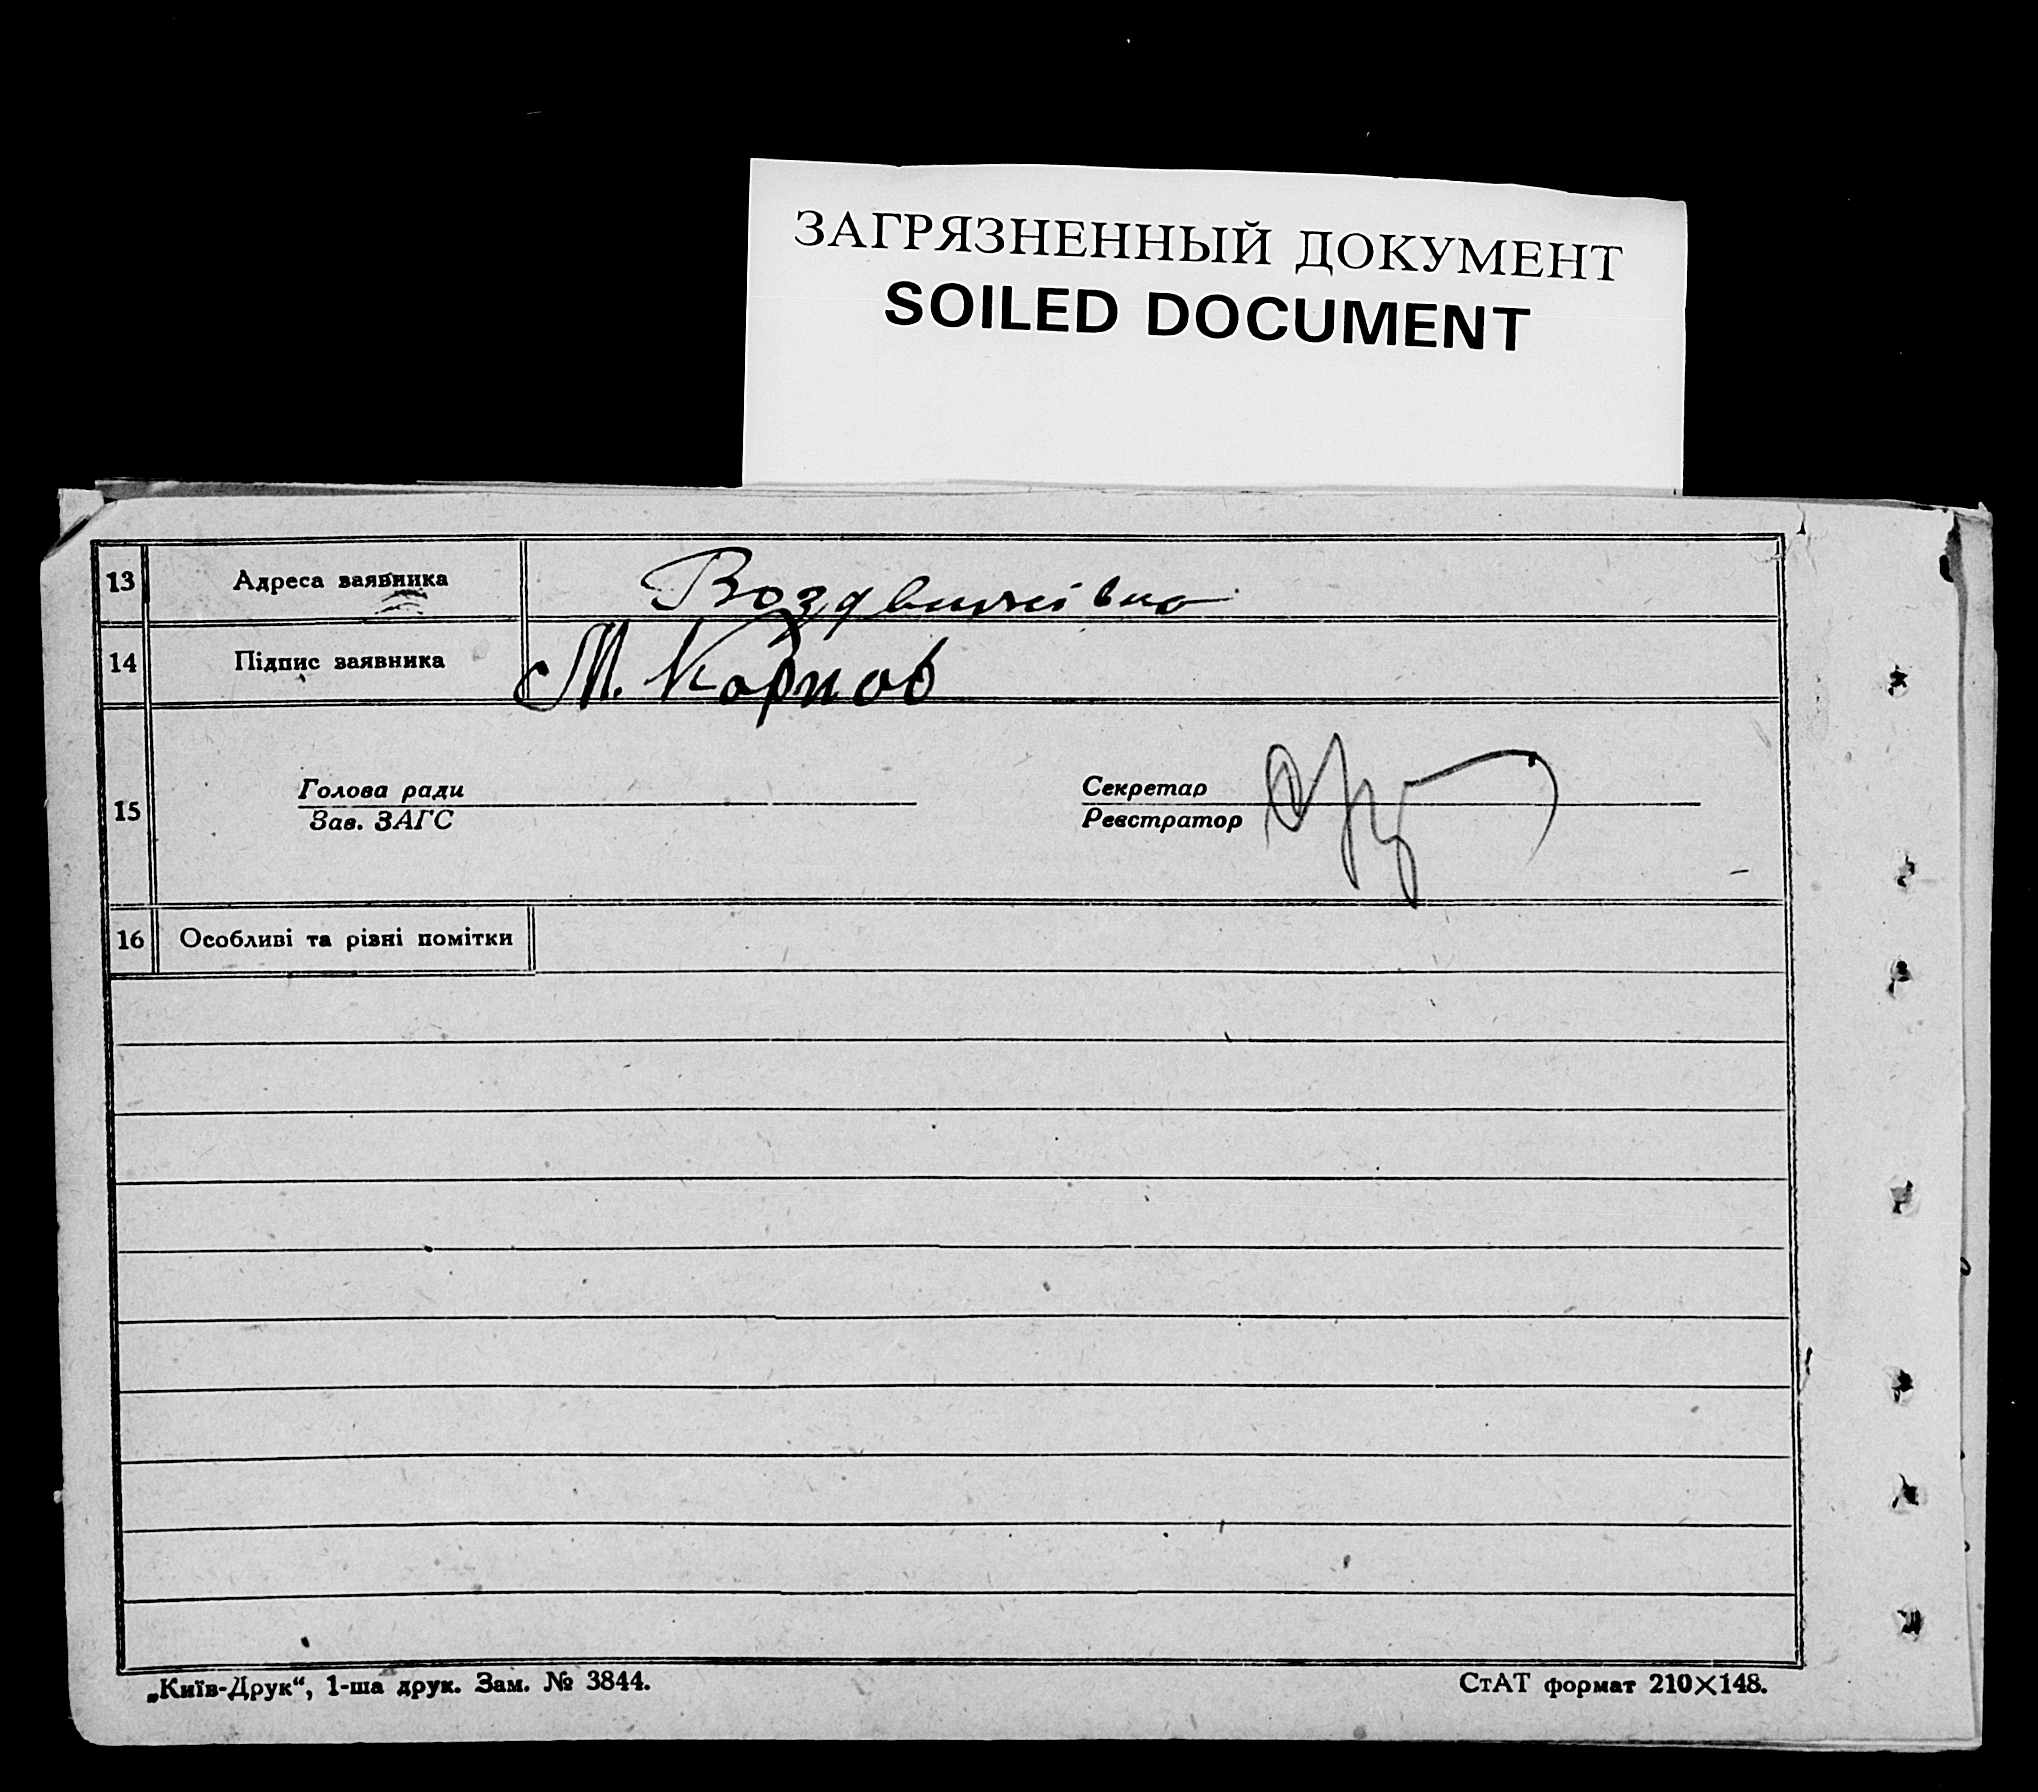 ЗАГРЯЗНЕННЫЙ ДОКУМЕНТ
SOILED DOCUMENT
13 Адреса заявника Воздвижівка
14 Підпис заявника М. Карпов
15 Голова ради Секретар
Зав. ЗАГС Реєстратор
16 Особливі та різні помітки
„Київ-Друк“, 1-ша друк. Зам. № 3844. СтАТ формат 210×148.